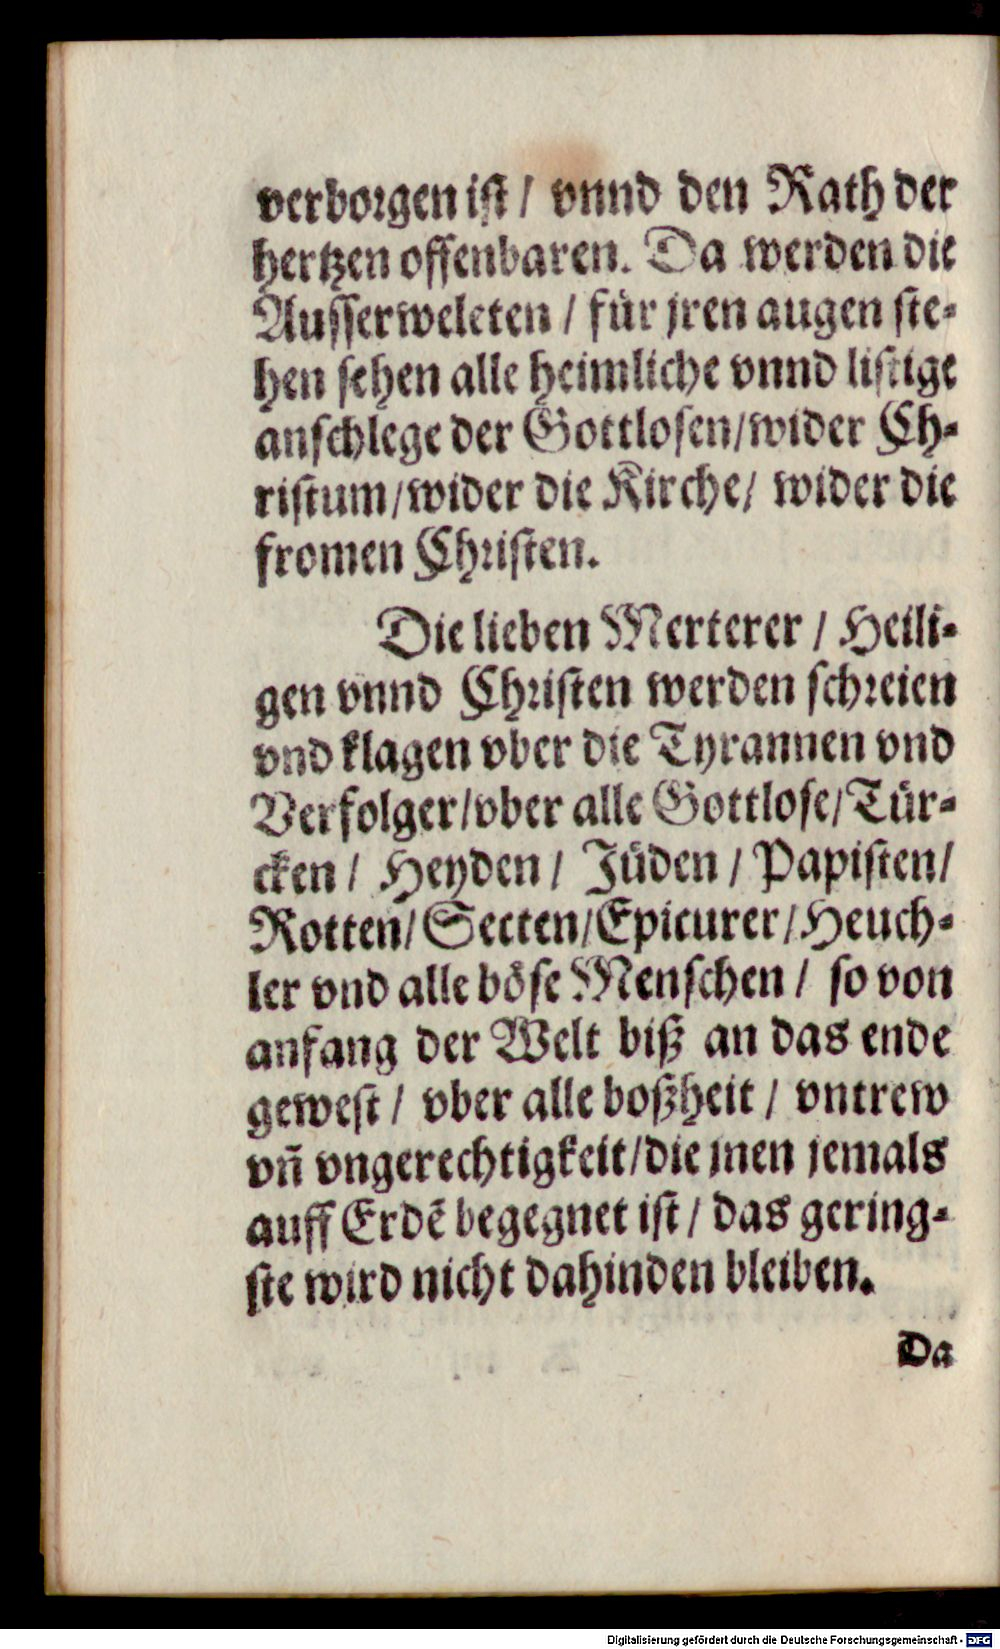 verborgen ist / vnnd den Rath der
hertzen offenbaren. Da werden die
Ausserweleten / für jren augen ste-
hen sehen alle heimliche vnnd listige
anschlege der Gottlosen/wider Ch-
ristum/wider die Kirche/ wider die
fromen Christen.
Die lieben Merterer / Heili-
gen vnnd Christen werden schreien
vnd klagen vber die Tyrannen vnd
Verfolger/vber alle Gottlose/Tür-
cken / Heyden / Jüden / Papisten/
Rotten/Secten/Epicurer/Heuch-
ler vnd alle böse Menschen / so von
anfang der Welt biß an das ende
gewest / vber alle boßheit / vntrew
vñ vngerechtigkeit/die jnen jemals
auff Erdẽ begegnet ist / das gering-
ste wird nicht dahinden bleiben.
Da
Digitalisierung gefördert durch die Deutsche Forschungsgemeinschaft - DFG